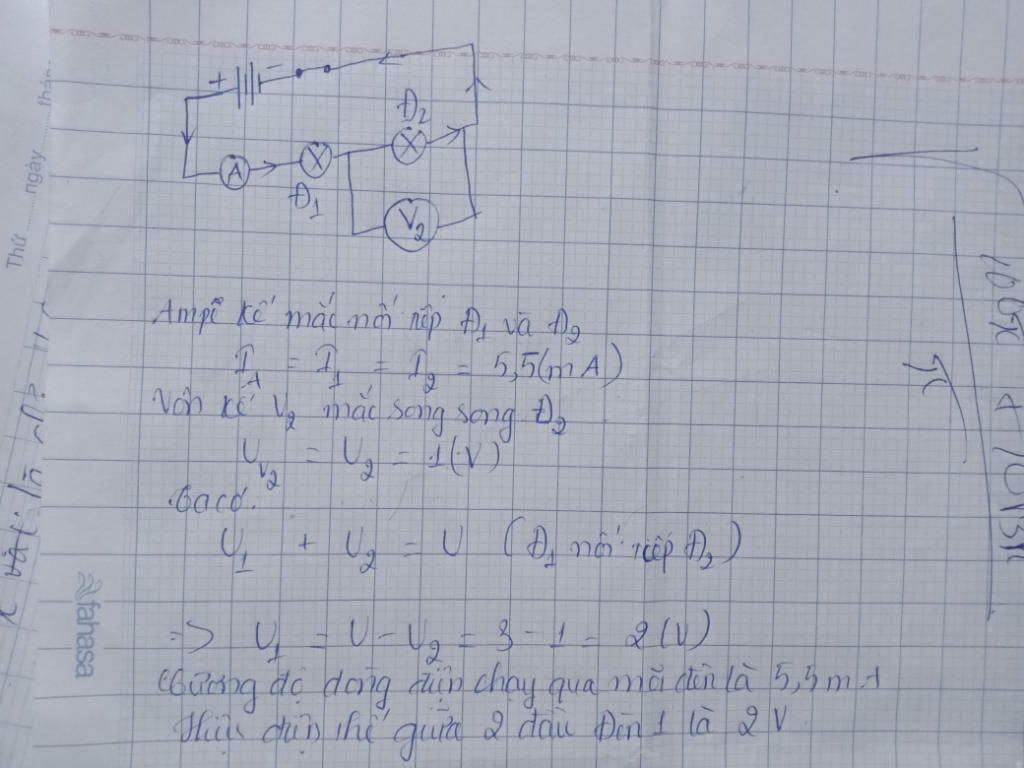 + -
Đ2
A X X
Đ1 V2
Ampe kế mắc nối tiếp Đ1 và Đ2
I_A = I_1 = I_2 = 5,5(mA)
Vôn kế V2 mắc song song Đ2
U_V2 = U_2 = 1(V)
Ta có:
U_1 + U_2 = U (Đ1 nối tiếp Đ2)
=> U_1 = U - U_2 = 3 - 1 = 2(V)
Cường độ dòng điện chạy qua mỗi đèn là 5,5mA
Hiệu điện thế giữa 2 đầu Đèn 1 là 2V
Thứ ngày
fahasa